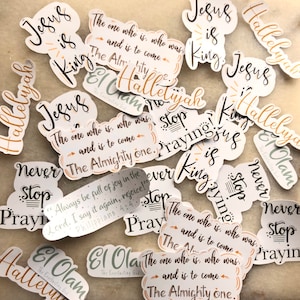 Hallelujah
Jesus
is
King
The one who is, who was
and is to come
The Almighty
Jesus
is
King
Hallelujah
Hallelujah
Hallelujah
El Olam
Jesus
is
King
The one who is, who was
and is to come
The Almighty One
Never
Stop
Praying
Jesus
is
King
El Olam
Never
Stop
Praying
Always be full of joy in the
Lord. I say it again, rejoice!
Never
Stop
Praying
Never
Stop
Praying
Never
Stop
Praying
The one who is, who was
and is to come
The
The one who is, who was
and is to come
The Almighty One
El Olam
El Olam
Hallelujah